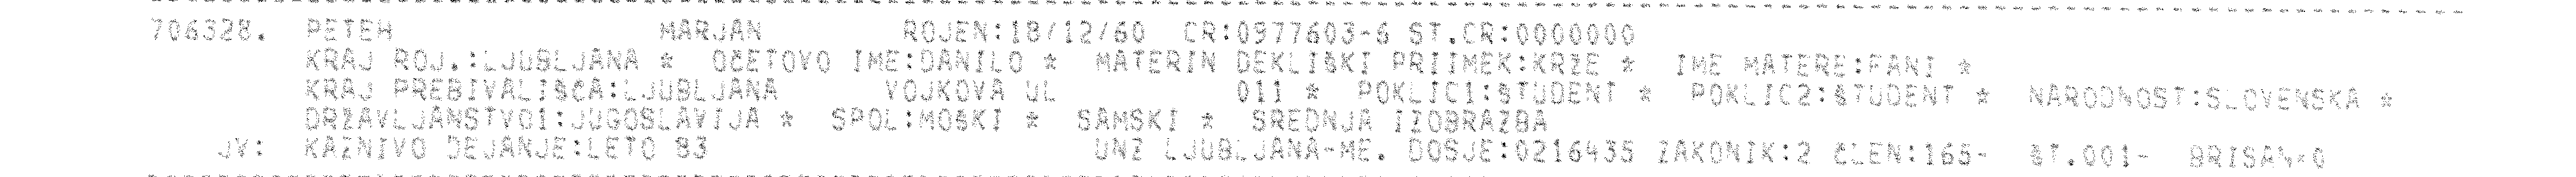 706328. PETEH MARJAN ROJEN:18/12/60 CR:0977603-6 ST.CR:0000000
KRAJ ROJ.:LJUBLJANA * OČETOVO IME:DANILO * MATERIN DEKLIŠKI PRIIMEK:KRŽE * IME MATERE:FANI *
KRAJ PREBIVALIŠČA:LJUBLJANA VOJKOVA UL 011 * POKLIC1:ŠTUDENT * POKLIC2:ŠTUDENT * NARODNOST:SLOVENSKA *
DRŽAVLJANSTVO1:JUGOSLAVIJA * SPOL:MOŠKI * SAMSKI * SREDNJA IZOBRAZBA
JV: KAZNIVO DEJANJE:LETO 83 UNZ LJUBLJANA-ME. DOSJE:0216435 ZAKONIK:2 ČLEN:165- ŠT.001-